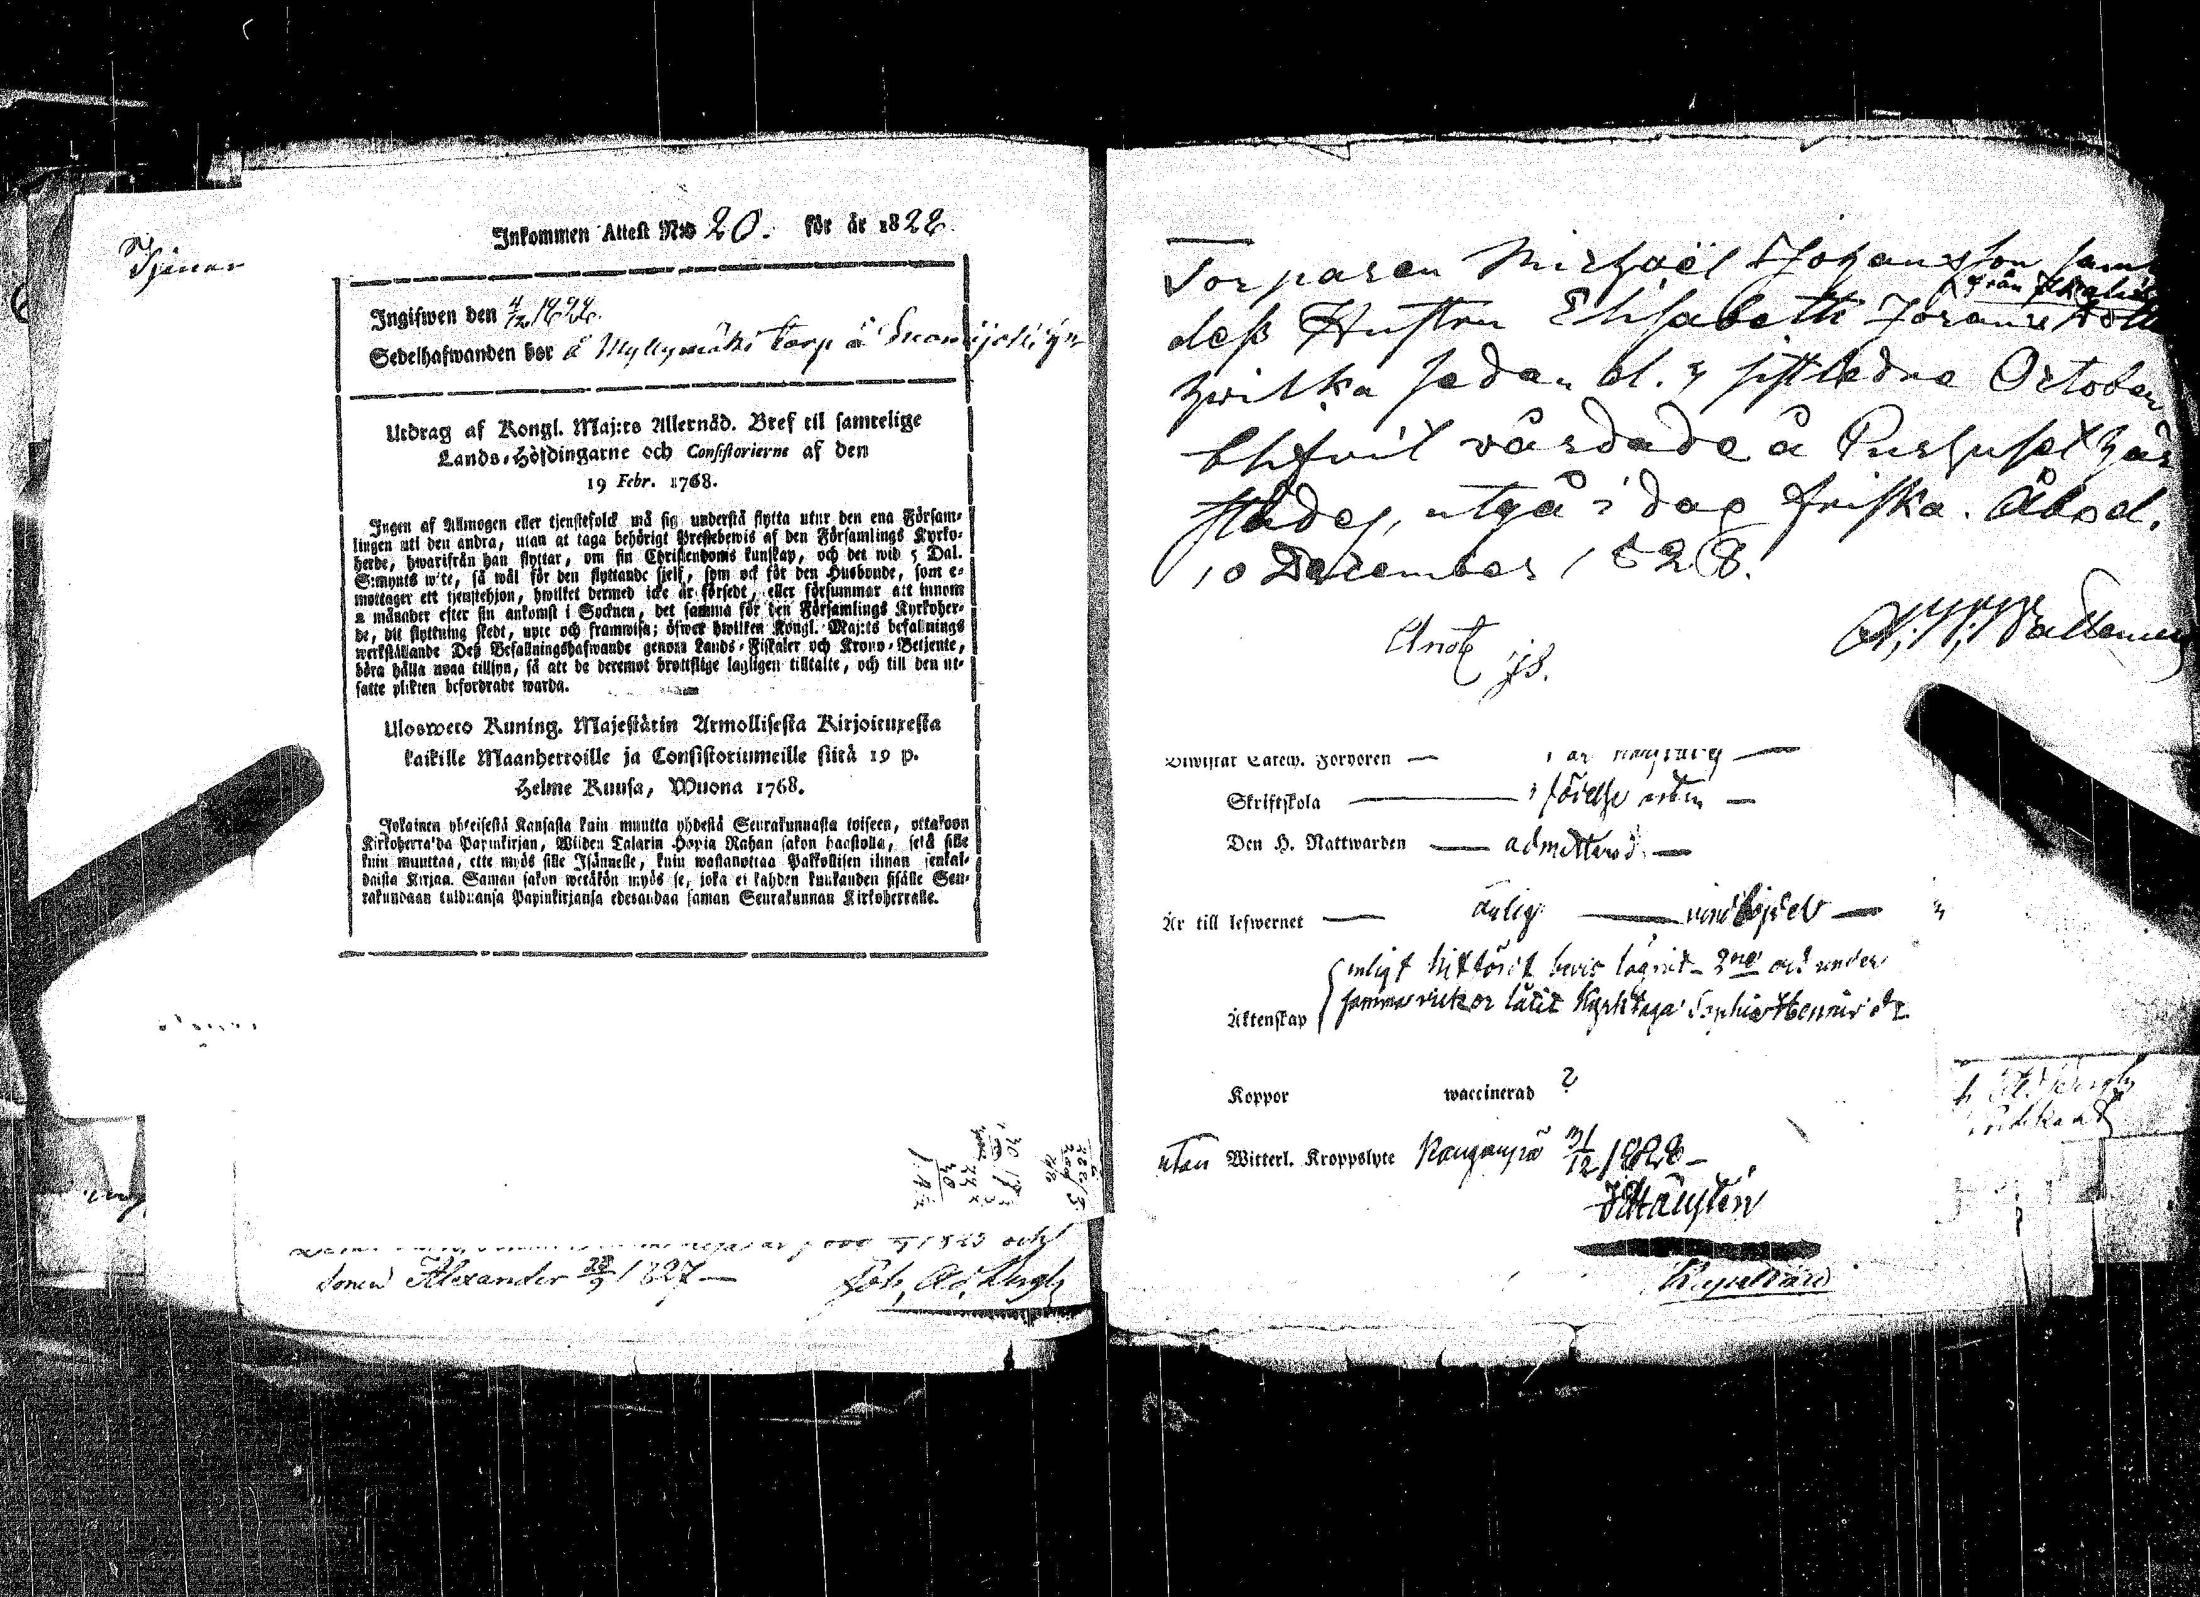 Tjenar
Inkommen Attest N:o 20. för år 1828.
Ingifwen den 4/12 1828.
Sedelhafwanden bor å Myllymäki torp å
Utdrag af Kongl. Maj:ts Allernåd. Bref til samtelige
Lands-Höfdingarne och Consistorierne af den
19 Febr. 1768.
Ingen af Allmogen eller tjenstefolck må sig understå flytta utur den ena Församlingen
uti den andra, utan at taga behörigt Prestebewis af den Församlings Kyrko-
herde, hwarifrån han flyttar, om sin Christendoms kunskap, och det wid 5 Dal.
S:mynts wite, så wäl för den flyttande sjelf, som ock för den Husbonde, som e-
mottager ett tjenstehjon, hwilket dermed icke är försedt, eller försummar att innom
2 månader efter sin ankomst i Socknen, det samma för den Församlings Kyrkoher-
de, dit flyttning skedt, upte och framwisa; öfwer hwilken Kongl. Maj:ts befallnings
werkställande Deß Befallningshafwande genom Lands-Fiskaler och Krono-Betjente,
böra hålla noga tillsyn, så att de deremot brottslige lagligen tilltalte, och till den ut-
satte plikten befordrade warda.
Uloswero Kuning. Majestätin Armollisesta Kirjoituxesta
kaikille Maanherroille ja Consistoriumeille siitä 19 p.
Helme Kuusa, Wuona 1768.
Jokainen yhteisestä Kansasta kuin muutta yhdestä Seurakunnasta toiseen, ottakoon
Kirkoherralda Papinkirjan, Wiiden Talarin Hopia Rahan sakon haastolla, sekä sille
kuin muuttaa, ette myös sille Isännelle, kuin wastanottaa Palkollisen ilman senkal-
daista Kirjaa. Saman sakon wetäkön myös se, joka ei kahden kuukauden sisälle Seu-
rakundaan tulduansa Papinkirjansa edesandaa saman Seurakunnan Kirkoherralle.
1823 och
sonen Alexander 28/9 1827 —
Torparen Michaël Johansson samt
deß Hustru Elisabeth Johans dott
från
hwilka sedan d. 7 sistledne October
blifvit vårdade å Curhuset här
städes, utgå i dag friska. Åbo d.
10 December 1828.
Skriftskola — i förelse orten —
Den H. Nattwarden — admitterad. —
Är till lefwernet — ärlig —
Äktenskap
enligt hittördt bevis lägrat - 2ne och under
samma veckor låtit Kyrktaga Sophia
Koppor waccinerad ?
utan Witterl. Kroppslyte 3/12 1828 —